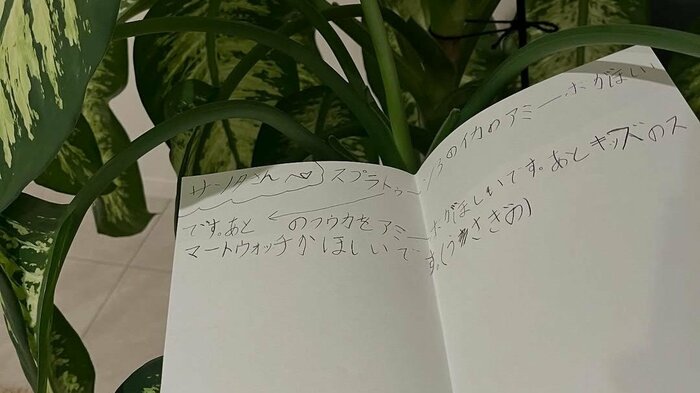 サンタさんへ♡ スプラトゥーン3のイカのアミーボがほしい
です。あと のフウカをアミーボがほしいです。あとキッズのス
マートウォッチがほしいです。(うさぎの)